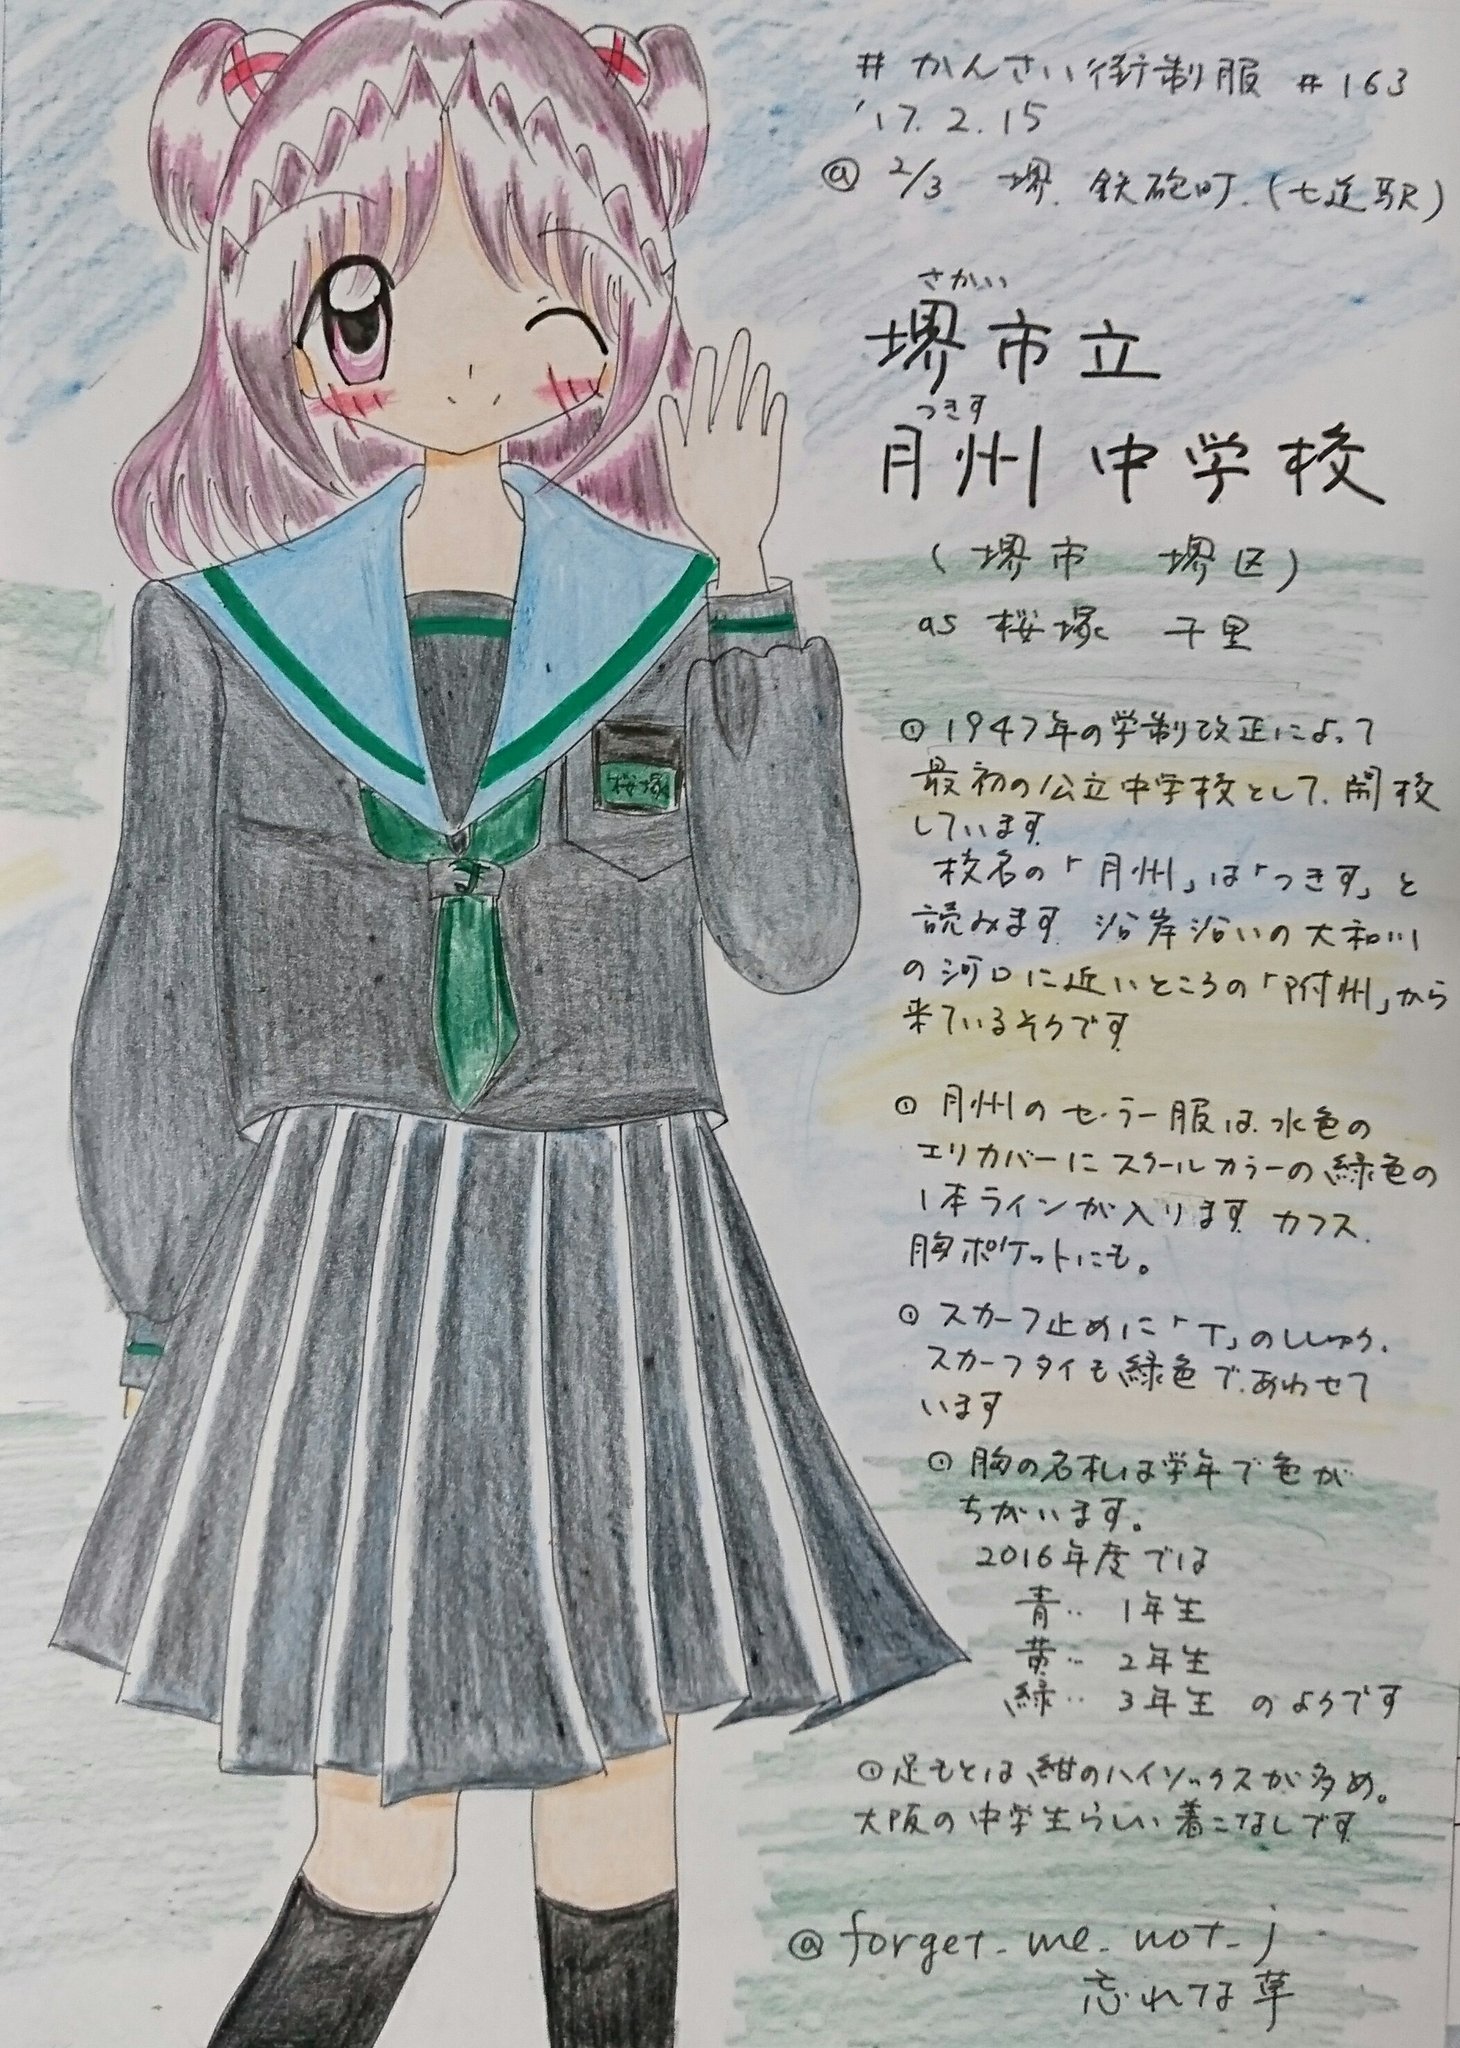 # かんさい街制服 #163
'17.2.15
@ 2/3 堺.鉄砲町.(七道駅)
さかい
堺市立
つきす
月州中学校
(堺市 堺区)
as 桜塚 千里
① 1947年の学制改正によって
最初の公立中学校として、開校
しています
校名の「月州」は「つきす」と
読みます 沿岸沿いの大和川
の河口に近いところの「附州」から
来ているそうです
① 月州のセーラー服は、水色の
エリカバーにスクールカラーの緑色の
1本ラインが入ります カフス、
胸ポケットにも。
① スカーフ止めに「T」のししゅう、
スカーフタイも緑色で、あわせて
います
① 胸の名札は学年で色が
ちがいます。
2016年度では
青‥ 1年生
黄‥ 2年生
緑‥ 3年生 のようです
① 足もとは、紺のハイソックスが多め。
大阪の中学生らしい着こなしです
@forget_me_not_j
忘れな草
桜塚